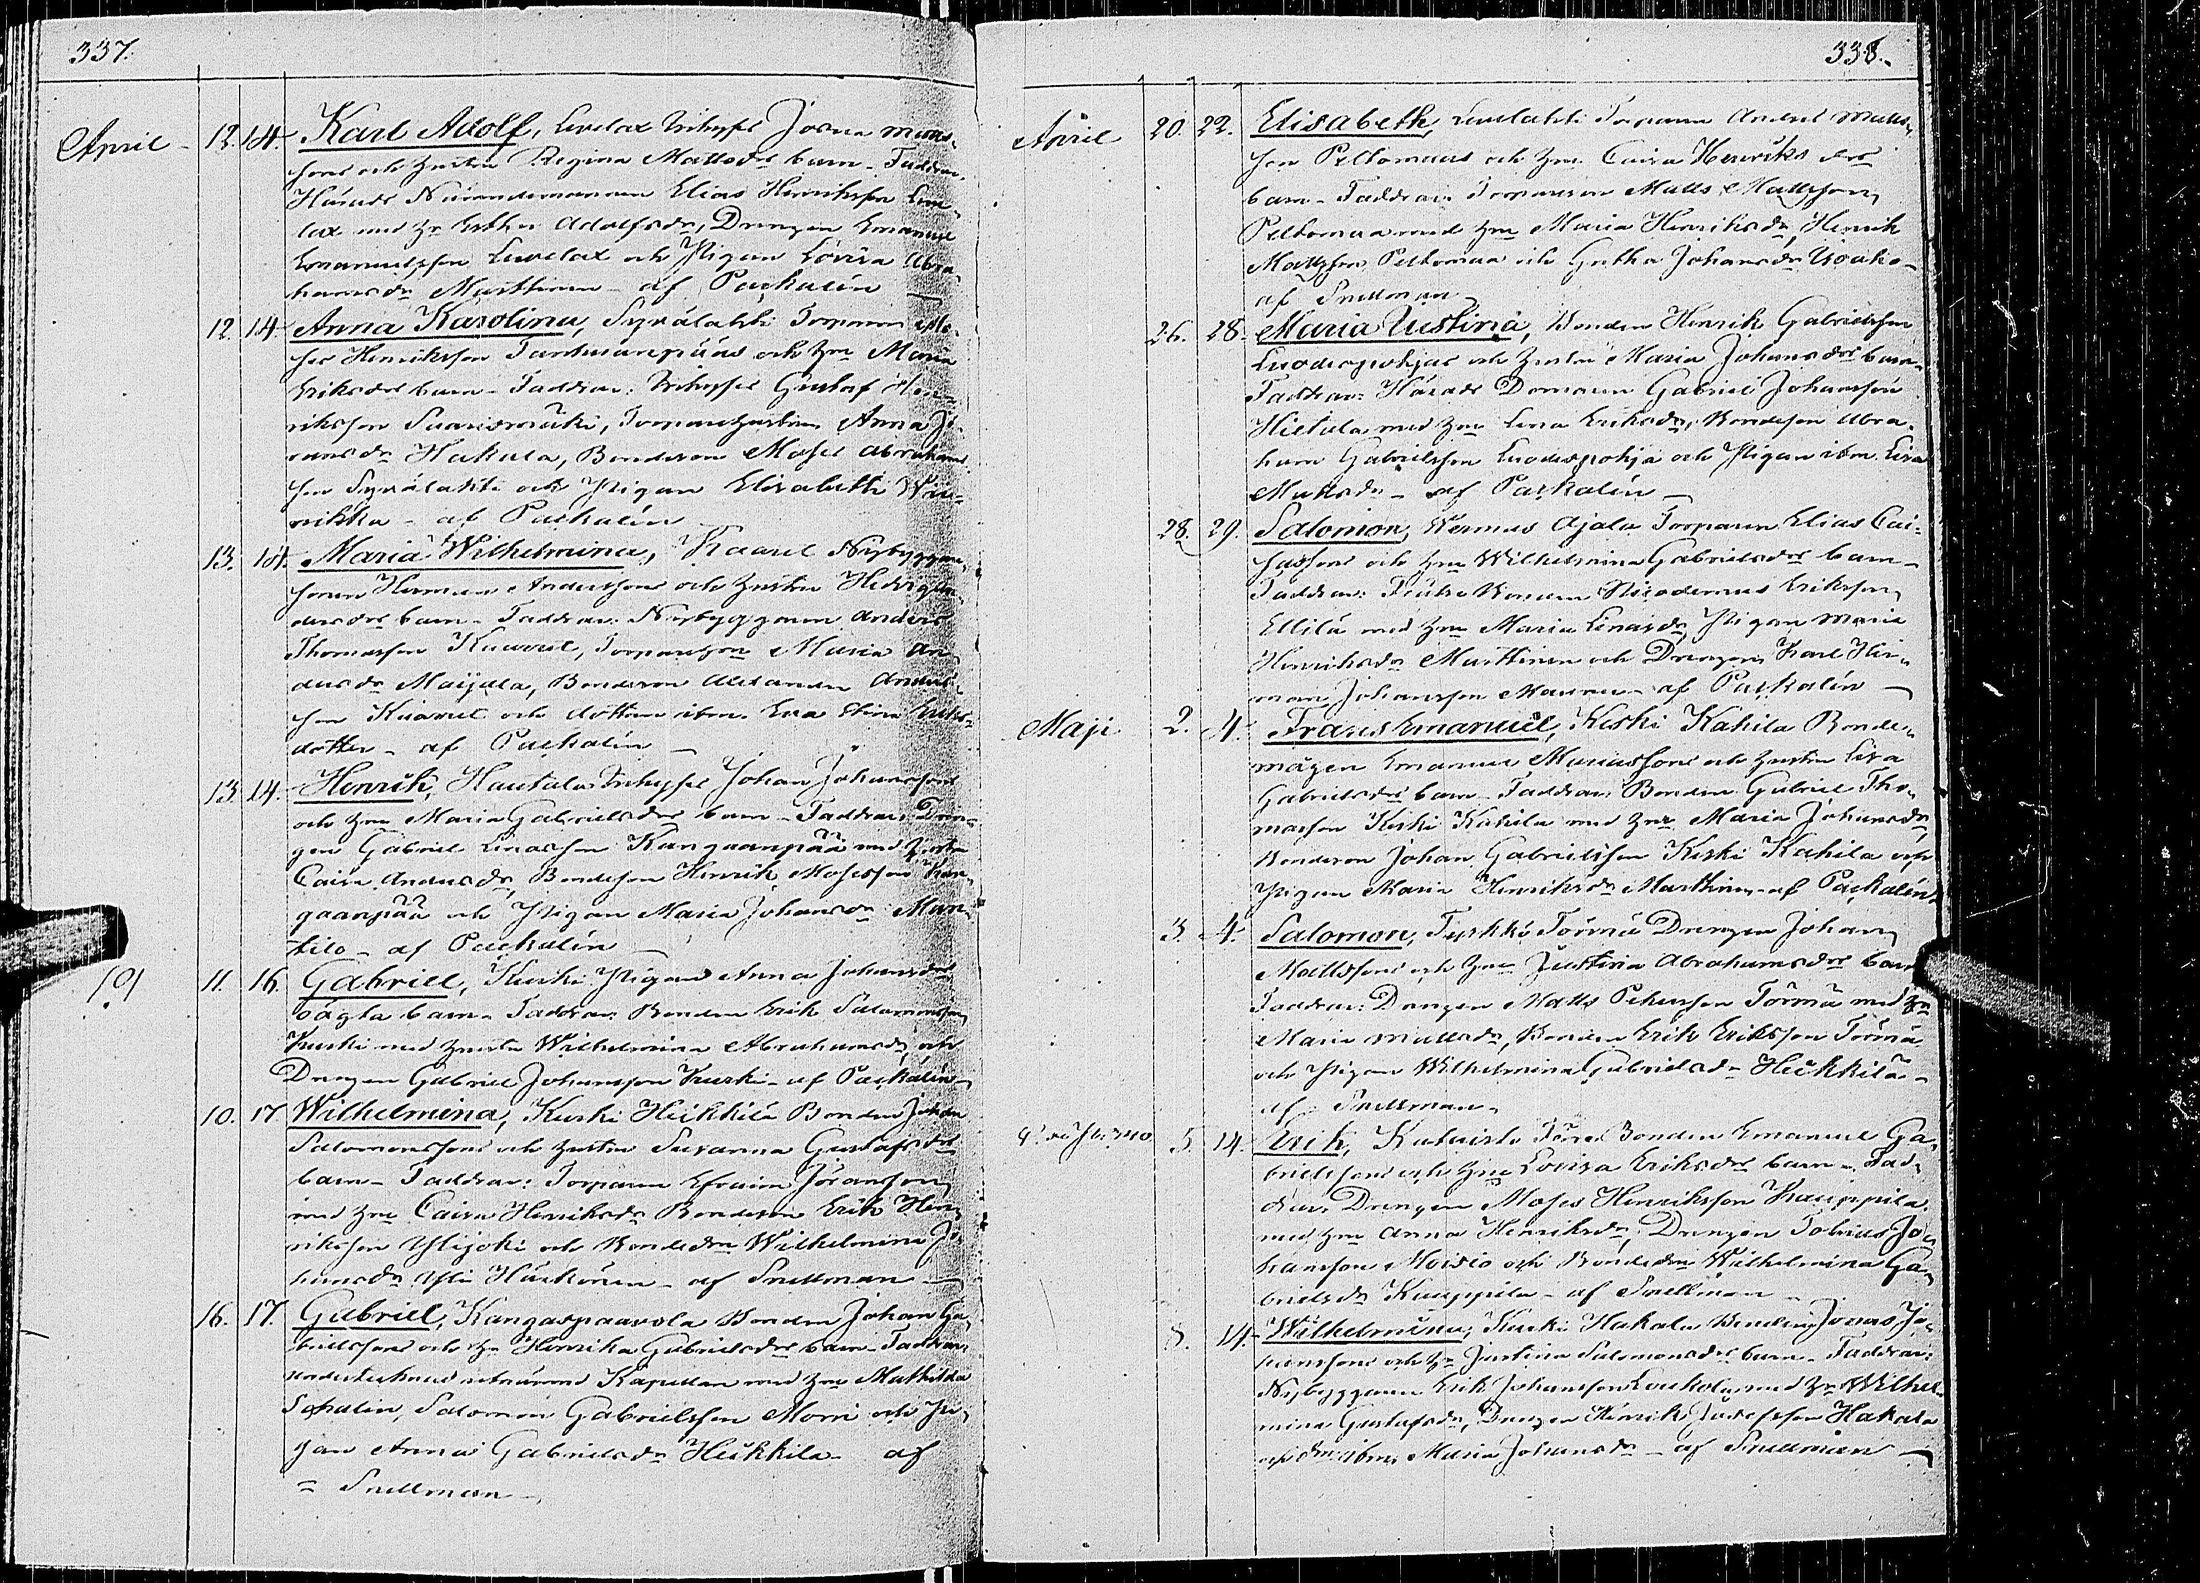 337.
April 12. 14. Karl Adolf, Lewelax Inhyses Jonas Matts-
sons och Hustru Regina Mattsdrs barn - Faddrar:
Härads Nämndemannen Elias Henriksson Leve-
lax med H. Esther Adolfsdr, Drengen Emanuel
Emanuelsson Lewelax och Pigan Lovisa Abra-
hamsdr Marttinen - af Paskalin
12. 14. Anna Karolina, Syrälahti Torparen Mo-
ses Henriksson Tantmanpääs och Hru Maria
Eriksdrs barn - Faddrar: Inhyses Gustaf Hen-
riksson Suanimäki, Torparehustrun Anna Jo-
hansdr Hakala, Bondeson Moses Abrahams-
son Syrälahti och Pigan Elisabeth
- af Paskalin
13. 14. Maria Wilhelmina, Kaarel Nybyggare
sonen Herman Anderssons och Hustru Hedvig An-
dersdrs barn - Faddrar: Nybyggaren Anders
Thomasson Kuarel, Torparehru Maria An-
dersdr Maijala, Bondeson Alexander Anders-
son Kuarel och dottren ibm. Eva Stina Eriks-
dotter - af Paskalin
13. 14. Henrik, Hautala Inhyses Johan Johanssons
och Hru Maria Gabrielsdrs barn - Faddrar: Dren-
gen Gabriel Linasson Kangaanpää med Hustru
Caisa Andersdr, Bondeson Henrik Mosesson Kan-
gaanpää och Pigan Maria Johansdr Man-
tila - af Paskalin
11. 16. Gabriel, Kurki Pigan Anna Johansdrs
oägta barn - Faddrar: Bonden Erik Salomonsson
Kurki med Hustru Wilhelmina Abrahamsdr, och
Drengen Gabriel Johansson Kurki - af Paskalin
10. 17. Wilhelmina, Kurki Heikkilä Bonden Johan
Salomonssons och Hustru Susanna Gustafsdrs
barn - Faddrar: Torparen Efraim Jöransson
med Hru Caisa Henriksdr Bondeson Erik Hen-
riksson Ylijoki och Bondedr Wilhelmina Jo-
hansdr Yli Härkönen - af Snellman
16. 17. Gabriel, Kangaspaavola Bonden Johan Ga-
brielssons och Hr Henrika Gabrielsdrs barn - Faddrar:
undertecknad Kapellan med Hru Mathilda
Salomon Gabrielsson Morri och Pi-
gan Anna Gabrielsdr Heikkilä - af
= Snellman
338.
April 20. 22. Elisabeth, Lewelahti Torparen Anders Matts-
son Peltomaas och Hru Caisa Henriksdrs
barn - Faddrar: Torparesonen Matts Mattsson
Peltomaa med Hru Maria Henriksdr, Henrik
Mattsson Peltomaa och Gretha Johansdr
af Snellman
26. 28. Maria Justina, Bonden Henrik Gabrielsson
Luodespohjas och Hustru Maria Johansdrs barn -
Faddrar: Härads Domaren Gabriel Johansson
Hietala med Hru Lena Eriksdr, Bondeson Abra-
ham Gabrielsson Luodespohja och Pigan ibm. Lisa
Mattsdr - af Paskalin
28. 29. Salomon, Wermus Ajala Torparen Elias Cai-
sassons och Hru Wilhelmina Gabrielsdrs barn -
Faddrar: Bonden Nicodemus Eriksson
Ellilä med Hru Maria Linasdr Pigan Maria
Henriksdr Marttinen och Drengen Karl Her-
man Johansson Maunu - af Paskalin
Maji 2. 4. Frans Emanuel, Keski Kahila Bonde-
mågen Emanuel Mariassons och Hustru Lisa
Gabrielsdrs barn - Faddrar: Bonden Gabriel Tho-
masson Keski Kahila med Hru Maria Johansdr,
Bondeson Johan Gabrielsson Keski Kahila och
Pigan Maria Henriksdr Marttinen - af Paskalin
3. 4. Salomon, Tyrkkö Törmä Drengen Johan
Mattssons och Hru Justina Abrahamsdrs barn
Faddrar: Drengen Matts Pehrsson Törmä med Hru
Maria Mattsdr, Bonden Erik Eriksson Törmä
och Pigan Wilhelmina Gabrielsdr Heikkilä -
af Snellman
5. 14. Erik, Bonden Emanuel Ga-
brielssons och Hru Lovisa Eriksdrs barn - Fad-
drar: Drengen Moses Henriksson Kauppila
med Hru Anna Henriksdr, Drengen Tobias Jo-
hansson Moisio och Bondedr Wilhelmina Ga-
brielsdr Kauppila - af Snellman
8. 14. Wilhelmina, Kurki Hakala Bonden Jonas Jo-
hanssons och Hr Justina Salomonsdrs barn - Faddrar:
Nybyggaren Erik Johansson Loukola med Hr Wilhel-
mina Gustafsdr, Drengen Henrik Hakala
och ibm. Maria Johansdr - af Snellman